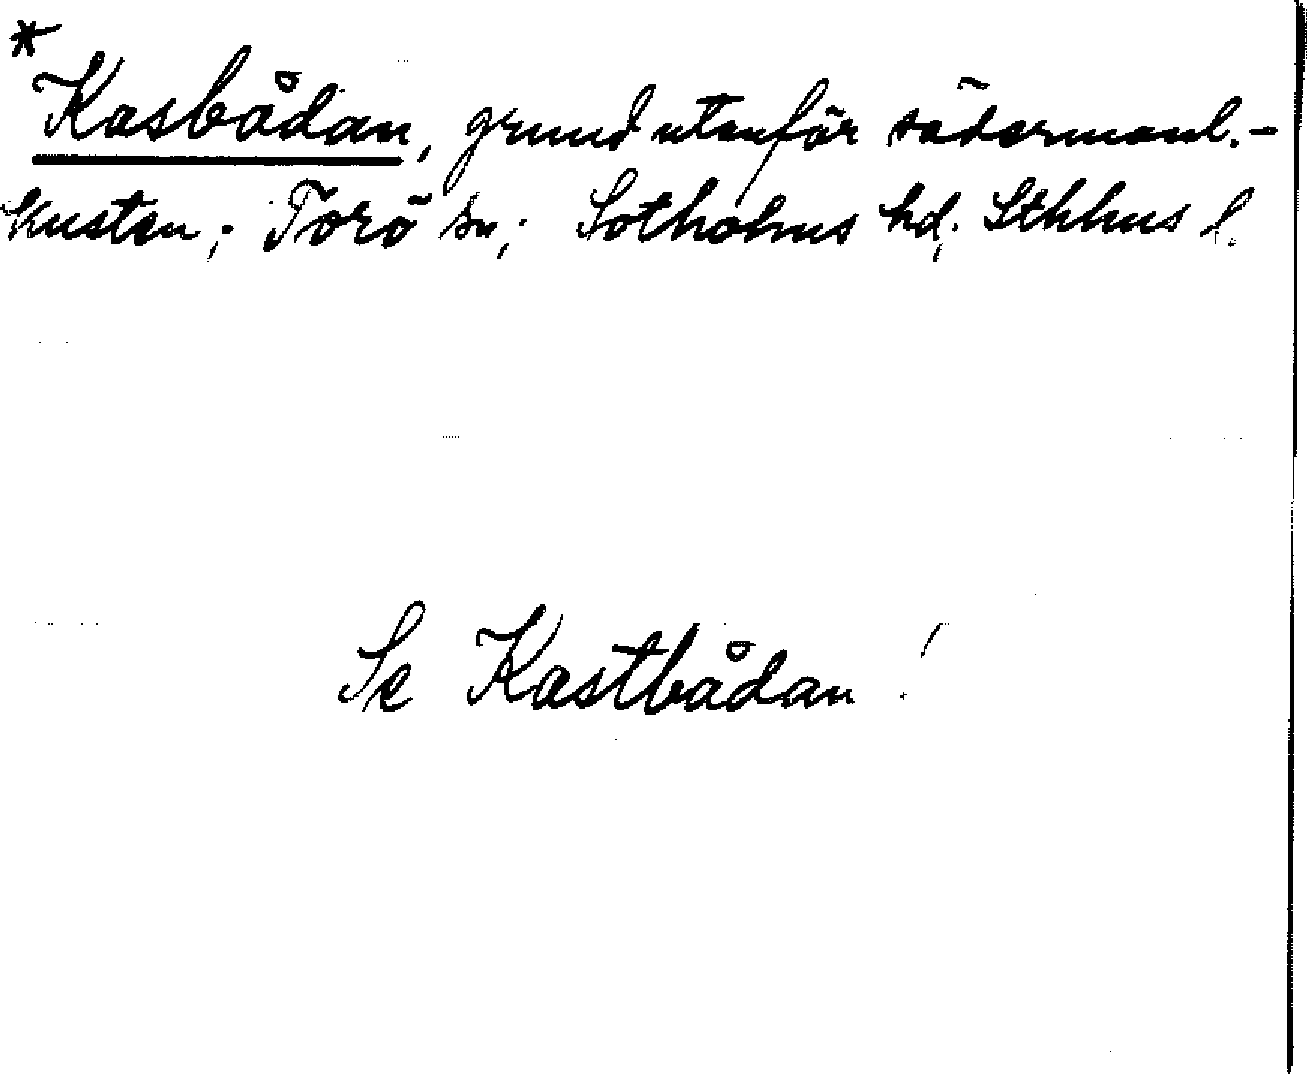 *
Kasbådan, grund utanför södermanl.-
kusten; Torö sn; Sotholms hd, Sthlms l.
Se Kastbådan!